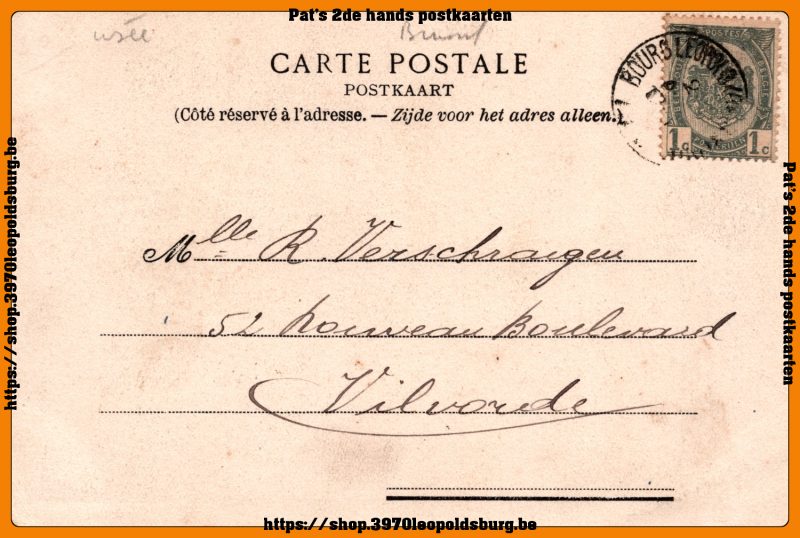 Pat's 2de hands postkaarten
usée
CARTE POSTALE
POSTKAART
(Côté réservé à l'adresse. — Zijde voor het adres alleen.)
POSTES
1 c 1 c
Mlle R. Verschraegen
52 Nouveau Boulevard
Vilvorde
https://shop.3970leopoldsburg.be
https://shop.3970leopoldsburg.be
Pat's 2de hands postkaarten